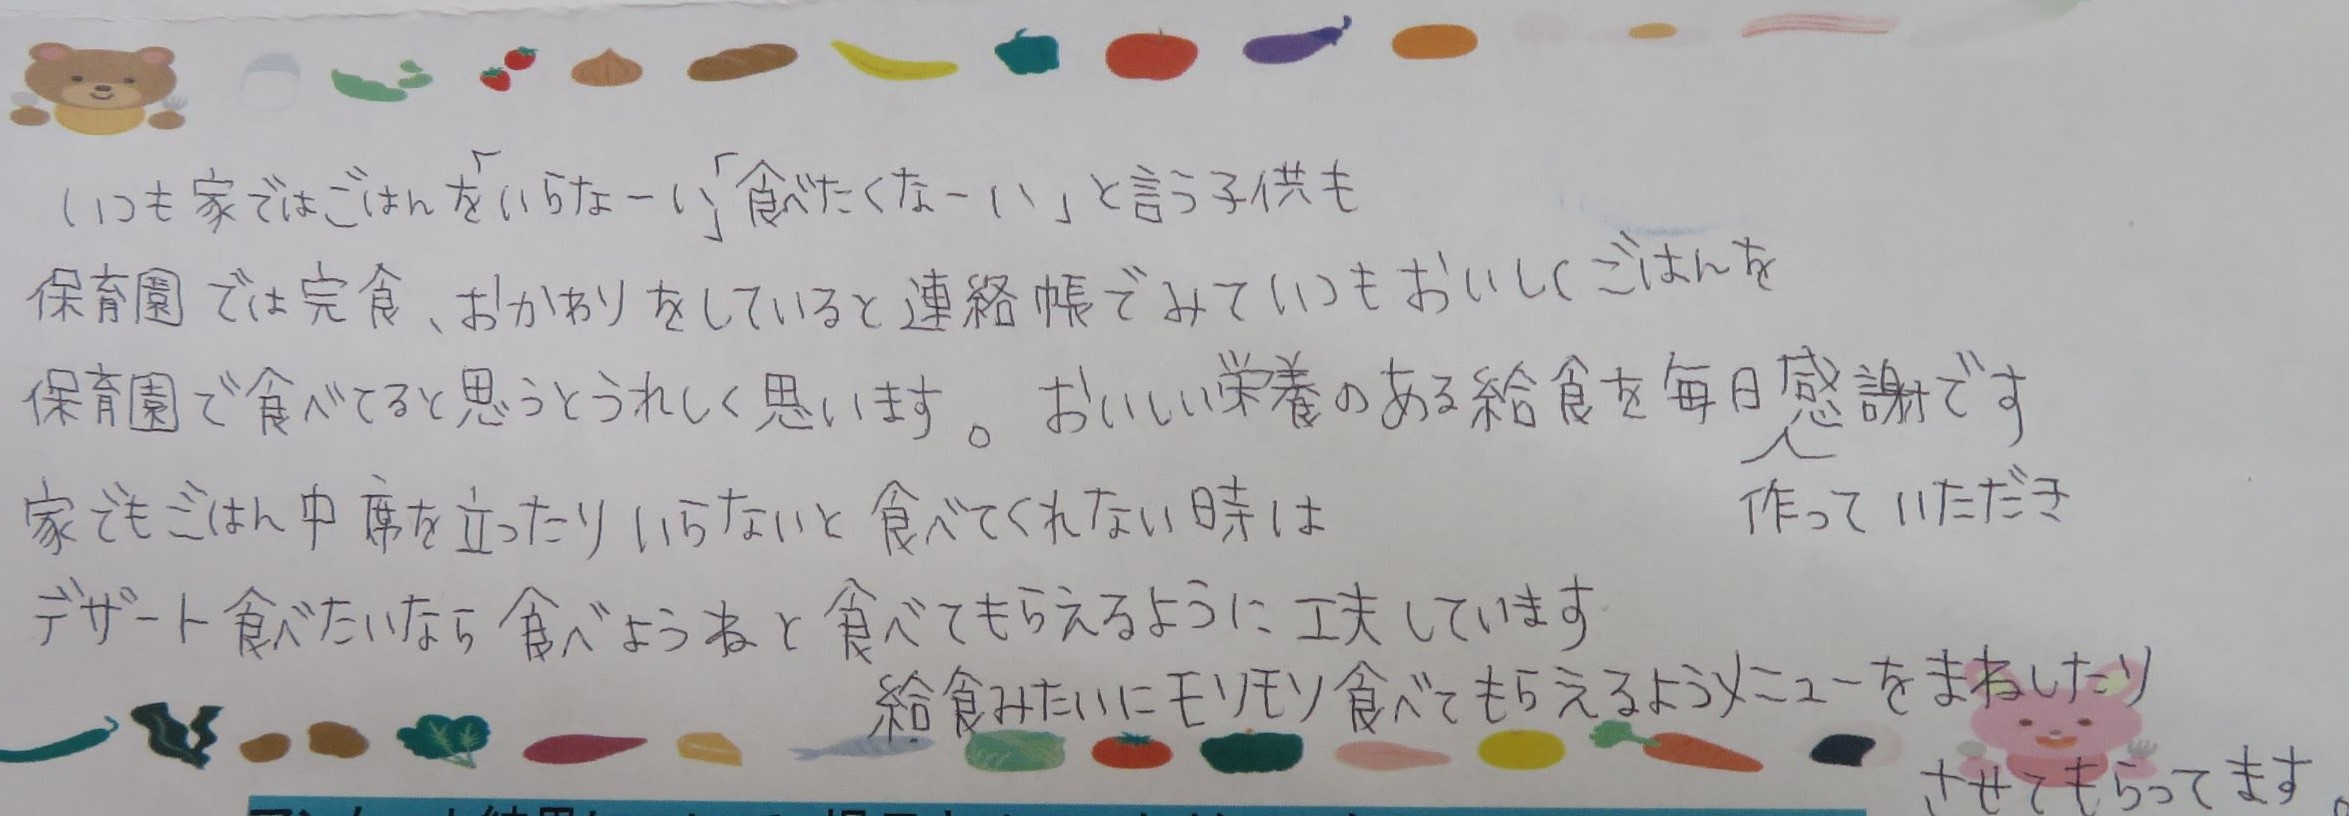 いつも家ではごはんを「いらなーい」「食べたくなーい」と言う子供も
保育園では完食、おかわりをしていると連絡帳でみていつもおいしくごはんを
保育園で食べてると思うとうれしく思います。おいしい栄養のある給食を毎日感謝です
作っていただき
家でもごはん中席を立ったりいらないと食べてくれない時は
デザート食べたいなら食べようねと食べてもらえるように工夫しています
給食みたいにモリモリ食べてもらえるようメニューをまねしたり
させてもらってます。